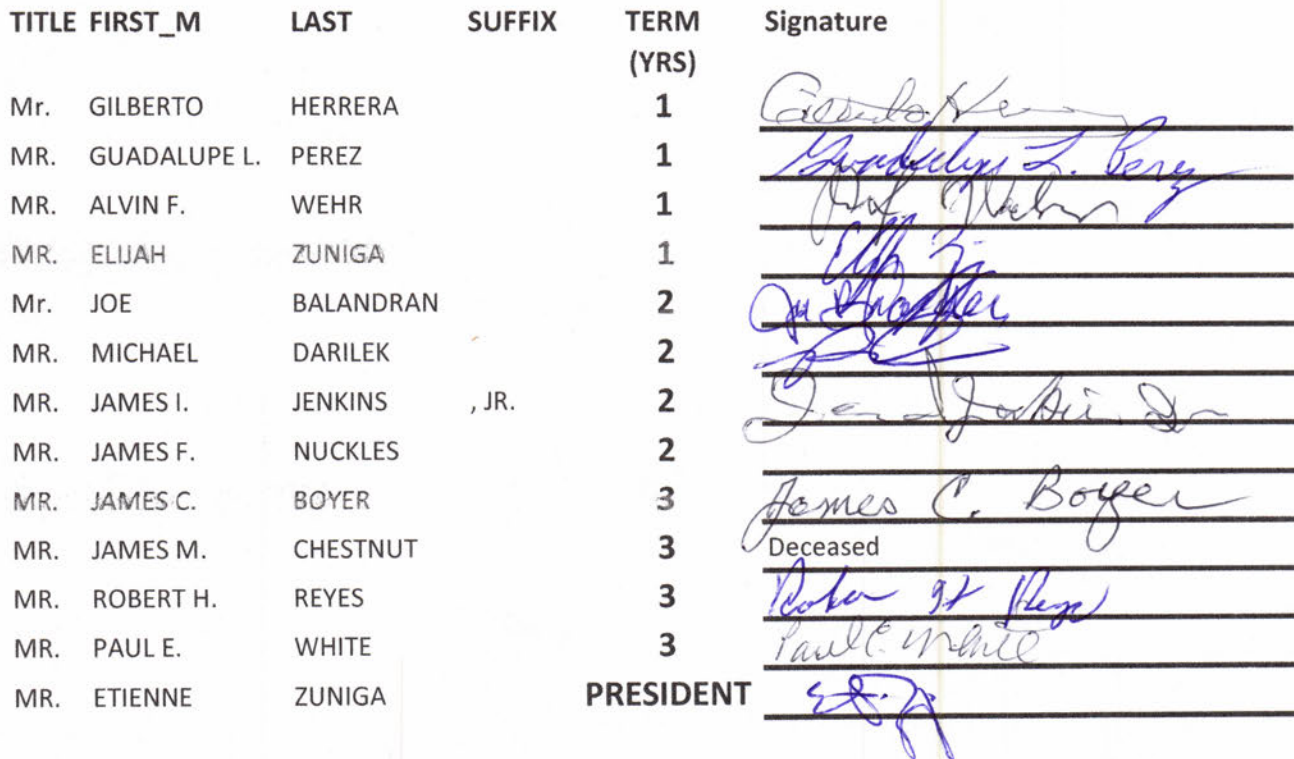 TITLE FIRST_M LAST SUFFIX TERM Signature
(YRS)
Mr. GILBERTO HERRERA 1
MR. GUADALUPE L. PEREZ 1 Guadalupe L. Perez
MR. ALVIN F. WEHR 1
MR. ELIJAH ZUNIGA 1
Mr. JOE BALANDRAN 2
MR. MICHAEL DARILEK 2
MR. JAMES I. JENKINS , JR. 2
MR. JAMES F. NUCKLES 2
MR. JAMES C. BOYER 3 James C. Boyer
MR. JAMES M. CHESTNUT 3 Deceased
MR. ROBERT H. REYES 3
MR. PAUL E. WHITE 3 Paul E. White
MR. ETIENNE ZUNIGA PRESIDENT